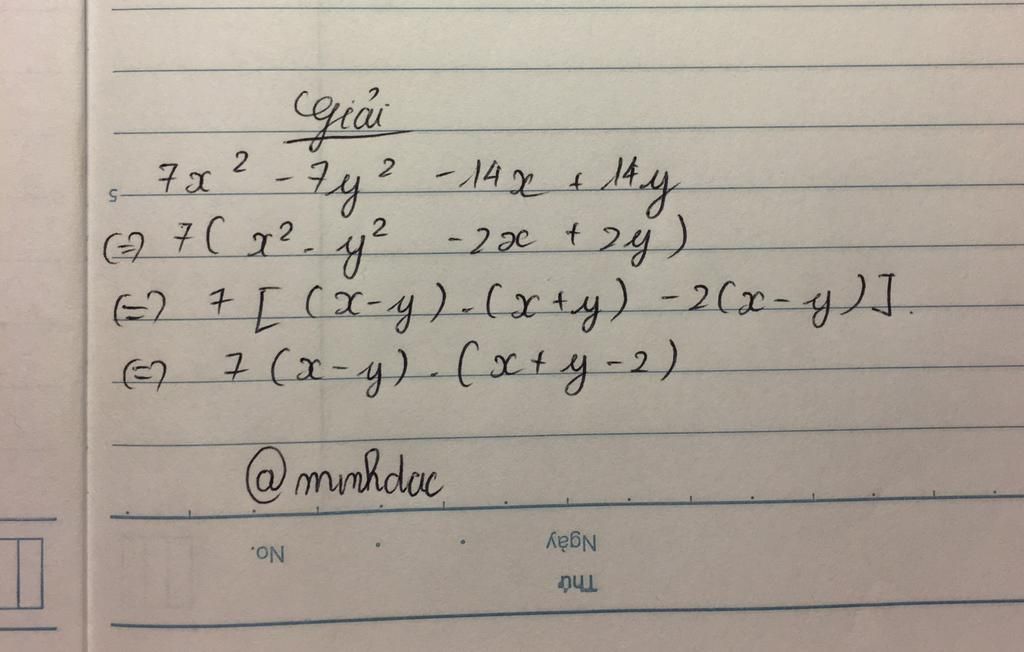 Giải
7x² - 7y² - 14x + 14y
5
(=) 7( x² - y² - 2x + 2y )
(=) 7 [ (x - y) . (x + y) - 2(x - y) ].
(=) 7 (x - y) . (x + y - 2)
@minhdac
No.
Ngày
Thứ